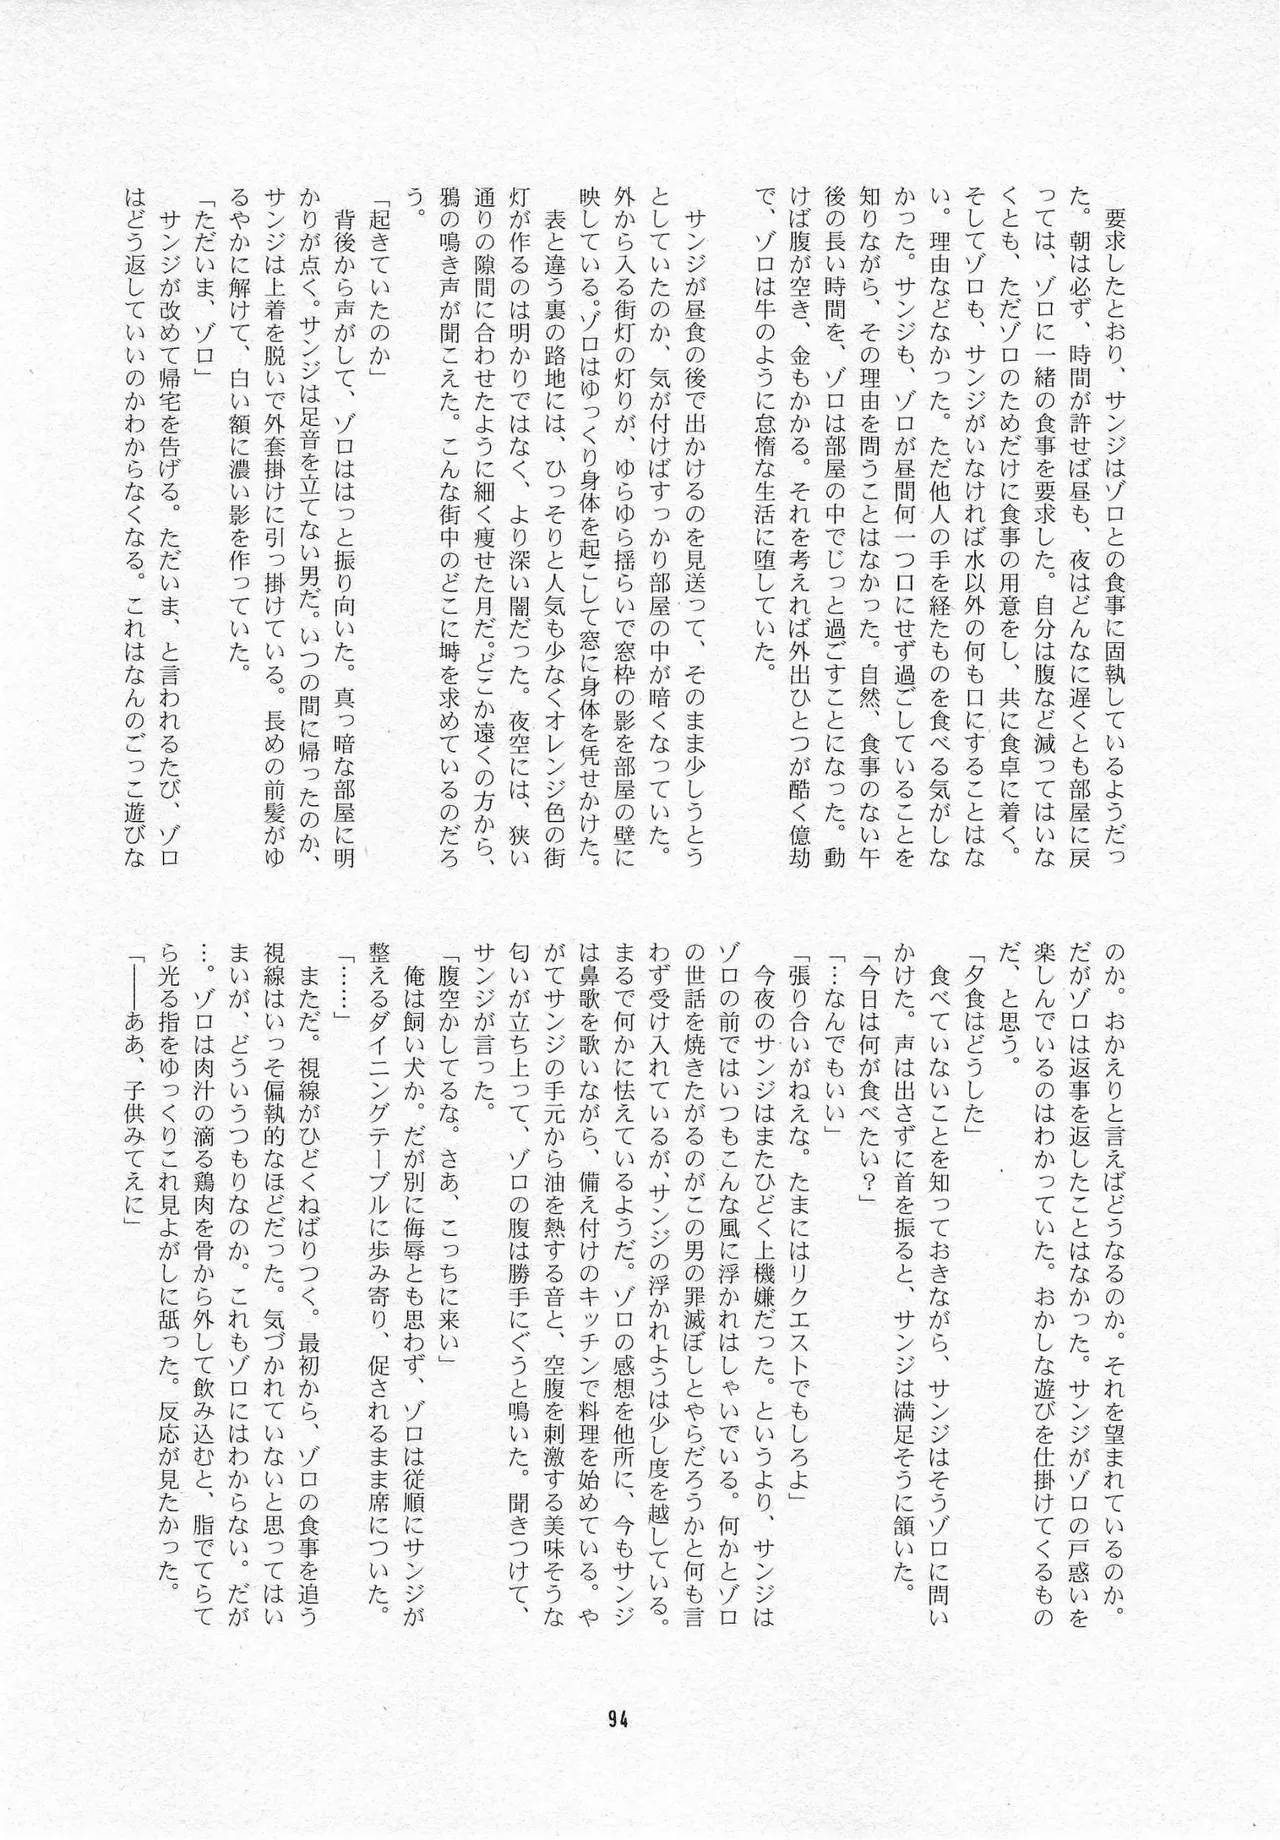 要求したとおり、サンジはゾロとの食事に固執しているようだっ
た。朝は必ず、時間が許せば昼も、夜はどんなに遅くとも部屋に戻
っては、ゾロに一緒の食事を要求した。自分は腹など減ってはいな
くとも、ただゾロのためだけに食事の用意をし、共に食卓に着く。
そしてゾロも、サンジがいなければ水以外の何も口にすることはな
い。理由などなかった。ただ他人の手を経たものを食べる気がしな
かった。サンジも、ゾロが昼間何一つ口にせず過ごしていることを
知りながら、その理由を問うことはなかった。自然、食事のない午
後の長い時間を、ゾロは部屋の中でじっと過ごすことになった。動
けば腹が空き、金もかかる。それを考えれば外出ひとつが酷く億劫
で、ゾロは牛のように怠惰な生活に堕していた。
　サンジが昼食の後で出かけるのを見送って、そのまま少しうとう
としていたのか、気が付けばすっかり部屋の中が暗くなっていた。
外から入る街灯の灯りが、ゆらゆら揺らいで窓枠の影を部屋の壁に
映している。ゾロはゆっくり身体を起こして窓に身体を凭せかけた。
　表と違う裏の路地には、ひっそりと人気も少なくオレンジ色の街
灯が作るのは明かりではなく、より深い闇だった。夜空には、狭い
通りの隙間に合わせたように細く痩せた月だ。どこか遠くの方から、
鴉の鳴き声が聞こえた。こんな街中のどこに塒を求めているのだろ
う。
「起きていたのか」
　背後から声がして、ゾロははっと振り向いた。真っ暗な部屋に明
かりが点く。サンジは足音を立てない男だ。いつの間に帰ったのか、
サンジは上着を脱いで外套掛けに引っ掛けている。長めの前髪がゆ
るやかに解けて、白い額に濃い影を作っていた。
「ただいま、ゾロ」
　サンジが改めて帰宅を告げる。ただいま、と言われるたび、ゾロ
はどう返していいのかわからなくなる。これはなんのごっこ遊びな
のか。おかえりと言えばどうなるのか。それを望まれているのか。
だがゾロは返事を返したことはなかった。サンジがゾロの戸惑いを
楽しんでいるのはわかっていた。おかしな遊びを仕掛けてくるもの
だ、と思う。
「夕食はどうした」
　食べていないことを知っておきながら、サンジはそうゾロに問い
かけた。声は出さずに首を振ると、サンジは満足そうに頷いた。
「今日は何が食べたい？」
「…なんでもいい」
「張り合いがねえな。たまにはリクエストでもしろよ」
　今夜のサンジはまたひどく上機嫌だった。というより、サンジは
ゾロの前ではいつもこんな風に浮かれはしゃいでいる。何かとゾロ
の世話を焼きたがるのがこの男の罪滅ぼしとやらだろうかと何も言
わず受け入れているが、サンジの浮かれようは少し度を越している。
まるで何かに怯えているようだ。ゾロの感想を他所に、今もサンジ
は鼻歌を歌いながら、備え付けのキッチンで料理を始めている。や
がてサンジの手元から油を熱する音と、空腹を刺激する美味そうな
匂いが立ち上って、ゾロの腹は勝手にぐうと鳴いた。聞きつけて、
サンジが言った。
「腹空かしてるな。さあ、こっちに来い」
　俺は飼い犬か。だが別に侮辱とも思わず、ゾロは従順にサンジが
整えるダイニングテーブルに歩み寄り、促されるまま席についた。
「……」
　まただ。視線がひどくねばりつく。最初から、ゾロの食事を追う
視線はいっそ偏執的なほどだった。気づかれていないと思ってはい
まいが、どういうつもりなのか。これもゾロにはわからない。だが
…。ゾロは肉汁の滴る鶏肉を骨から外して飲み込むと、脂でてらて
ら光る指をゆっくりこれ見よがしに舐った。反応が見たかった。
「――ああ、子供みてえに」
94